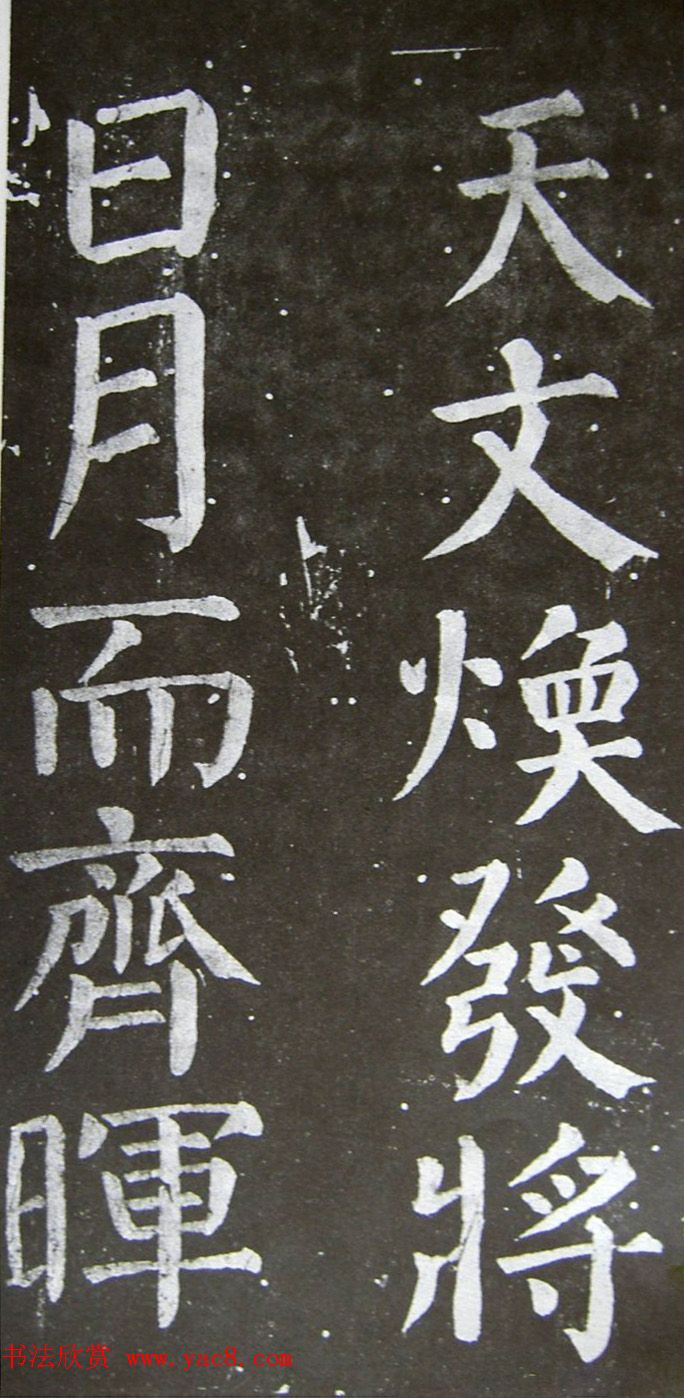 天文煥發將
日月而齊暉
书法欣赏 www.yac8.com